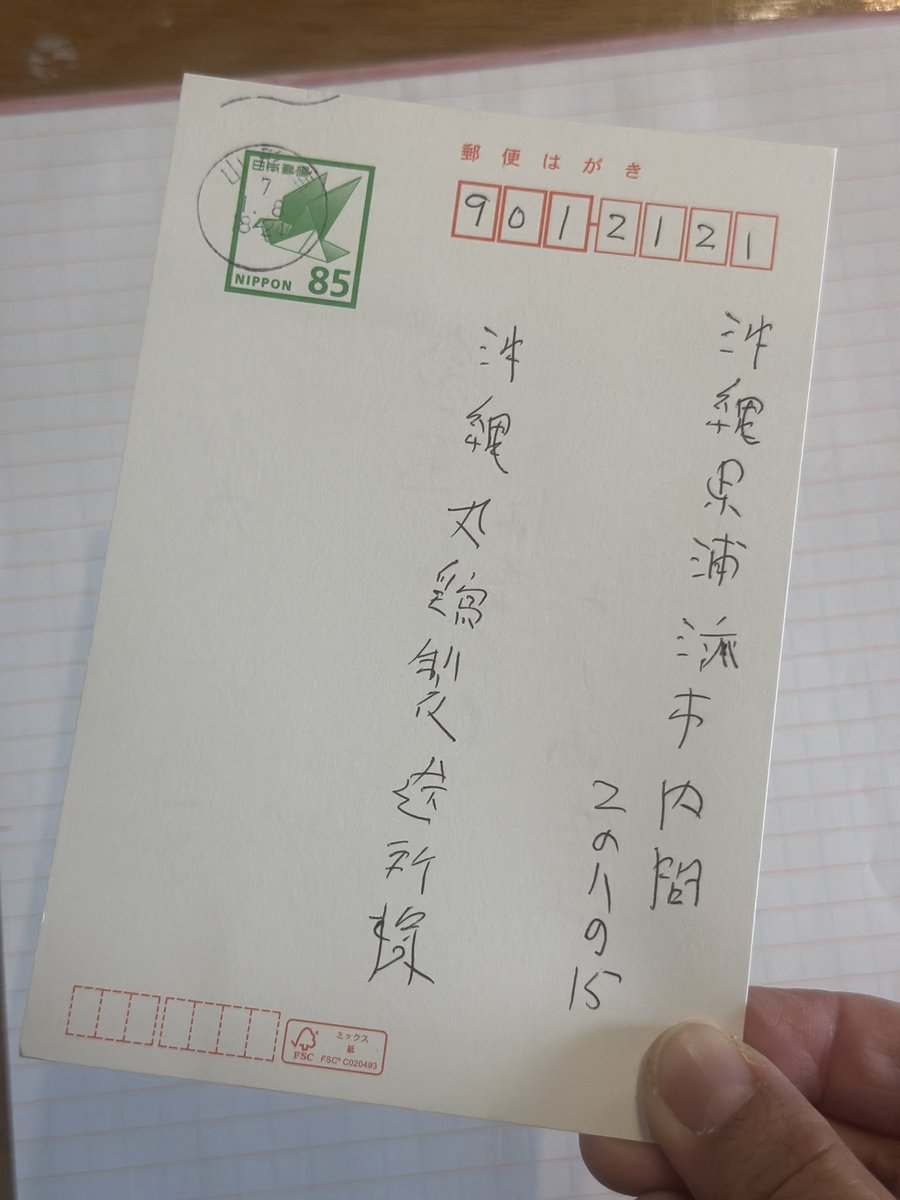 郵便はがき
901-2121
沖縄県浦添市内間
2の八の15
沖縄丸鶏製造所様
日本郵便
NIPPON 85
7
1. 8
ミックス
紙
FSC
FSC® C020493